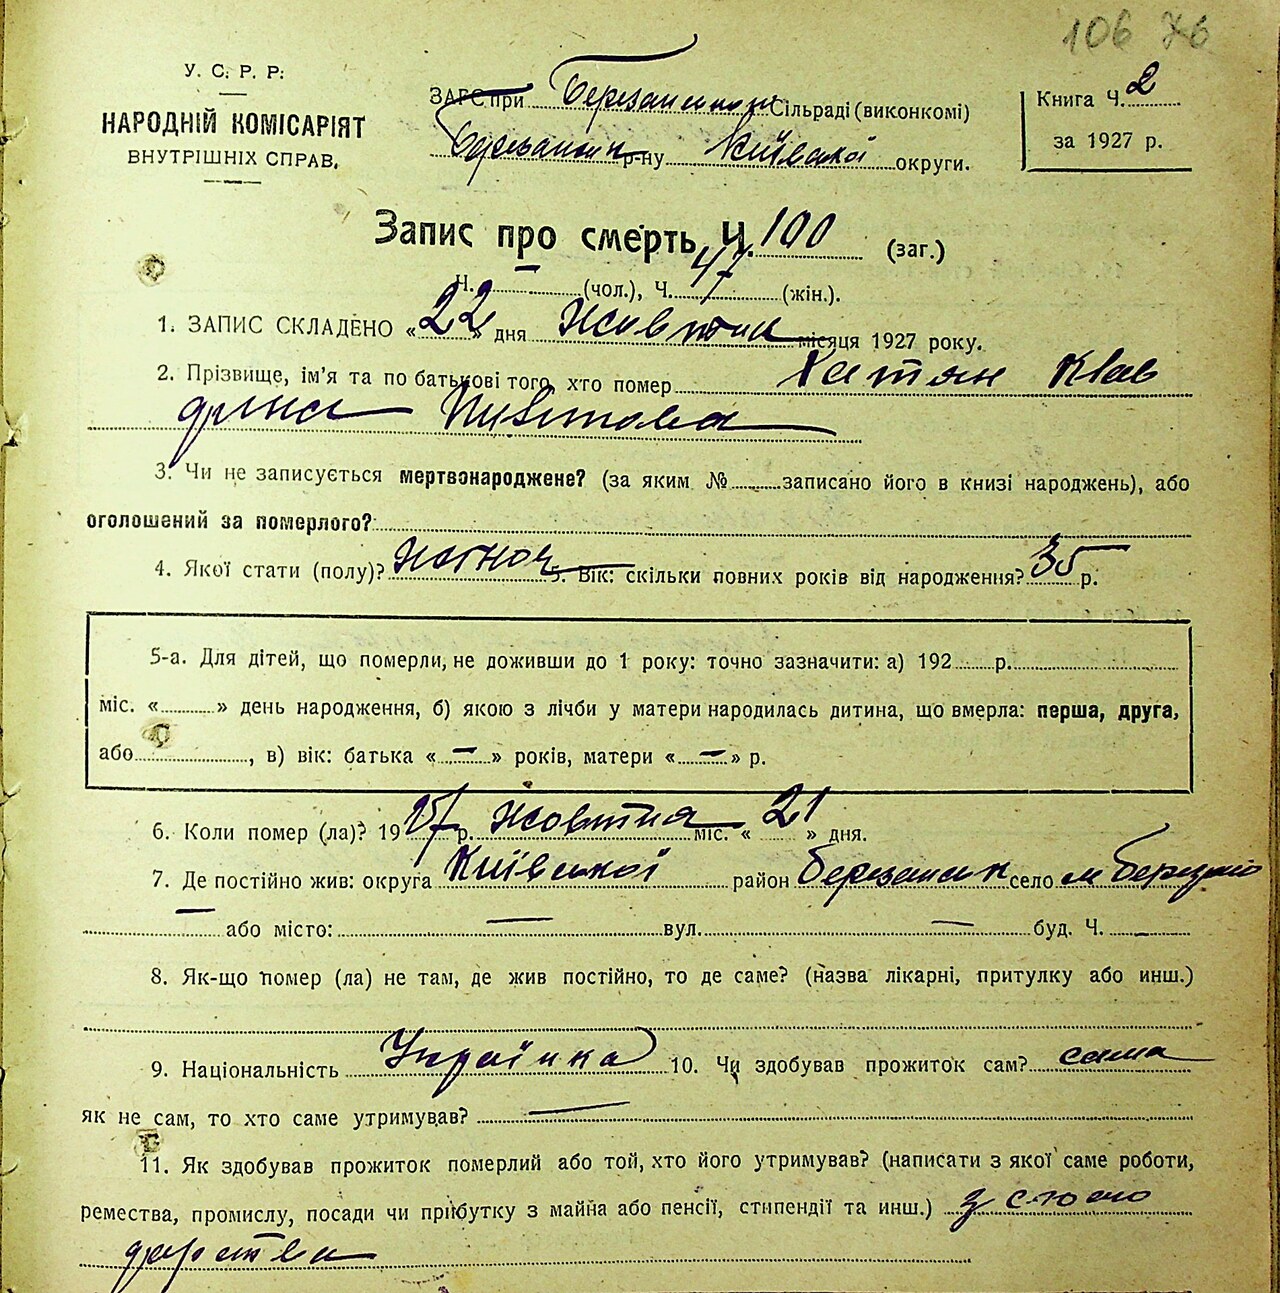 106 76
У. С. Р. Р.
НАРОДНІЙ КОМІСАРІЯТ
ВНУТРІШНІХ СПРАВ.
ЗАГС при Сільраді (виконкомі)
р-ну Київської округи.
Книга Ч. 2
за 1927 р.
Запис про смерть Ч. 100 (заг.)
Ч. — (чол.), Ч. 47 (жін.).
1. ЗАПИС СКЛАДЕНО «22» дня Жовтня місяця 1927 року.
2. Прізвище, ім'я та по батькові того, хто помер Хатян Клав
3. Чи не записується мертвонароджене? (за яким № записано його в книзі народжень), або
оголошений за померлого?
4. Якої стати (полу)? 5. Вік: скільки повних років від народження? 35 р.
5-а. Для дітей, що померли, не доживши до 1 року: точно зазначити: а) 192 р.
міс. « » день народження, б) якою з лічби у матери народилась дитина, що вмерла: перша, друга,
або , в) вік: батька « — » років, матери « — » р.
6. Коли помер (ла)? 1927 р. Жовтня міс. «21» дня.
7. Де постійно жив: округа Київської район Березанськ село м Березань
— або місто: — вул. — буд. Ч.
8. Як-що помер (ла) не там, де жив постійно, то де саме? (назва лікарні, притулку або инш.)
9. Національність Українка 10. Чи здобував прожиток сам? сама
як не сам, то хто саме утримував? —
11. Як здобував прожиток померлий або той, хто його утримував? (написати з якої саме роботи,
ремества, промислу, посади чи прибутку з майна або пенсії, стипендії та инш.) з